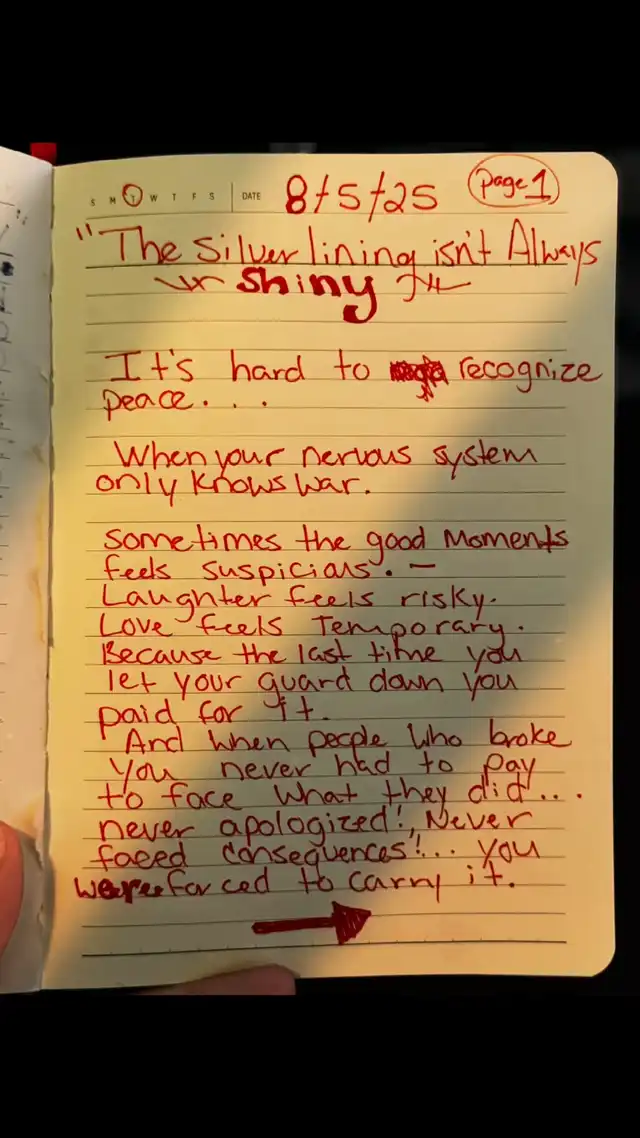 S M T W T F S DATE 8/5/25 page 1
"The silver lining isn't Always
Shiny
It's hard to recognize
peace. . .
When your nervous system
only knows war.
Sometimes the good Moments
feels suspicious. —
Laughter feels risky.
Love feels Temporary.
Because the last time you
let your guard down you
paid for it.
And when people who broke
you never had to pay
to face what they did...
never apologized!, Never
faced consequences!... you
were forced to carry it.